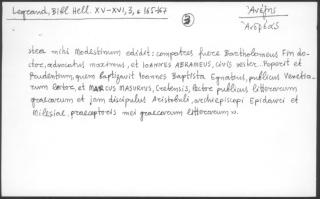 Legrand, Bibl Hell. XV-XVI, 3, σ 165-167
③
Ἀνέπης
Ἀνεψιός
mihi Modestinum edidit: compatres fuere Bartholomaeus Fin do-
ctor, advocatus maximus, et IOANNES ABRAMEUS, civis vester.. Poperit et
Prudentium, quem baptizavit Ioannes Baptista Egnatius, publicus Venetia-
rum lector, et MARCUS MASURUS, Cretensis, lector publicus litterarum
graecarum et jam discipulus Aristobuli, archiepiscopi Epidauri et
Milesiae, praeceptoris mei graecarum litterarum».